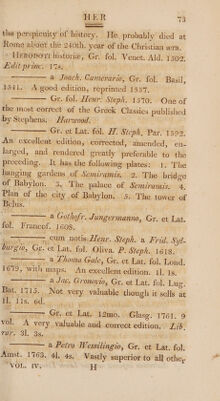 HER 73
the perspicuity of history. He probably died at
Rome about the 240th. year of the Christian æra.
HERODOTI historiæ, Gr. fol. Venet. Ald. 1502.
Edit princ. 17s.
——— a Joach. Camerario, Gr. fol. Basil,
1541. A good edition, reprinted 1557.
——— Gr. fol. Henr. Steph. 1570. One of
the most correct of the Greek Classics published
by Stephens. Harwood.
——— Gr. et Lat. fol. H. Steph. Par. 1592.
An excellent edition, corrected, amended, en-
larged, and rendered greatly preferable to the
preceding. It has the following plates: 1. The
hanging gardens of Semiramis. 2. The bridge
of Babylon. 3. The palace of Semiramis. 4.
Plan of the city of Babylon. 5. The tower of
Belus.
——— a Gothofr. Jungermanno, Gr. et Lat.
fol. Francof. 1608.
——— cum notis Henr. Steph. a Frid. Syl-
burgio, Gr. et Lat. fol. Oliva. P. Steph. 1618.
——— a Thoma Gale, Gr. et Lat. fol. Lond.
1679, with maps. An excellent edition. 1l. 1s.
——— a Jac. Gronovio, Gr. et Lat. fol. Lug.
Bat. 1715. Not very valuable though it sells at
1l. 11s. 6d.
——— Gr. et Lat. 12mo. Glasg. 1761. 9
vol. A very valuable and correct edition. Lib.
rar. 3l. 3s.
——— a Petro Wesselingio, Gr. et Lat. fol.
Amst. 1763. 4l. 4s. Vastly superior to all other
VOL. IV. H